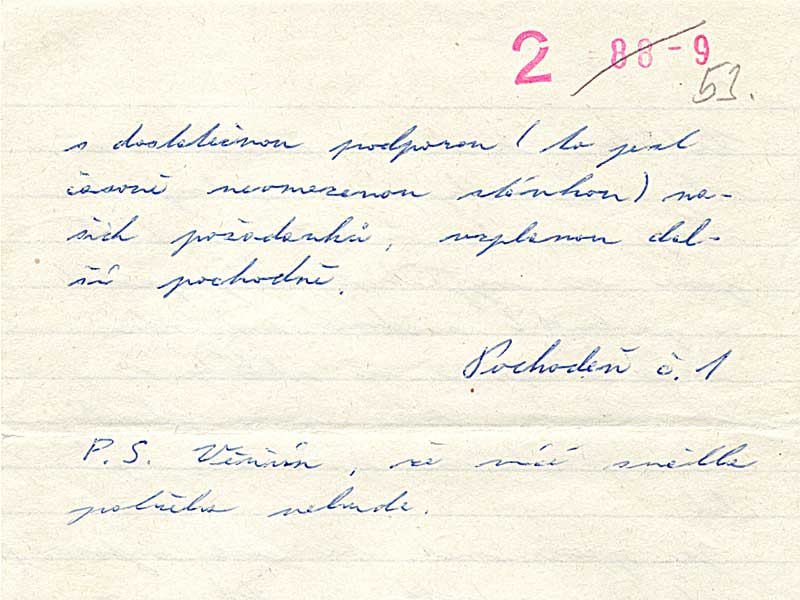 2 88-9
53.
s dostatečnou podporou (to jest
časově neomezenou stávkou) na-
šich požadavků, vzplanou dal-
ší pochodně.
Pochodeň č. 1
P.S. Věřím, že naše
potřeba nebude.